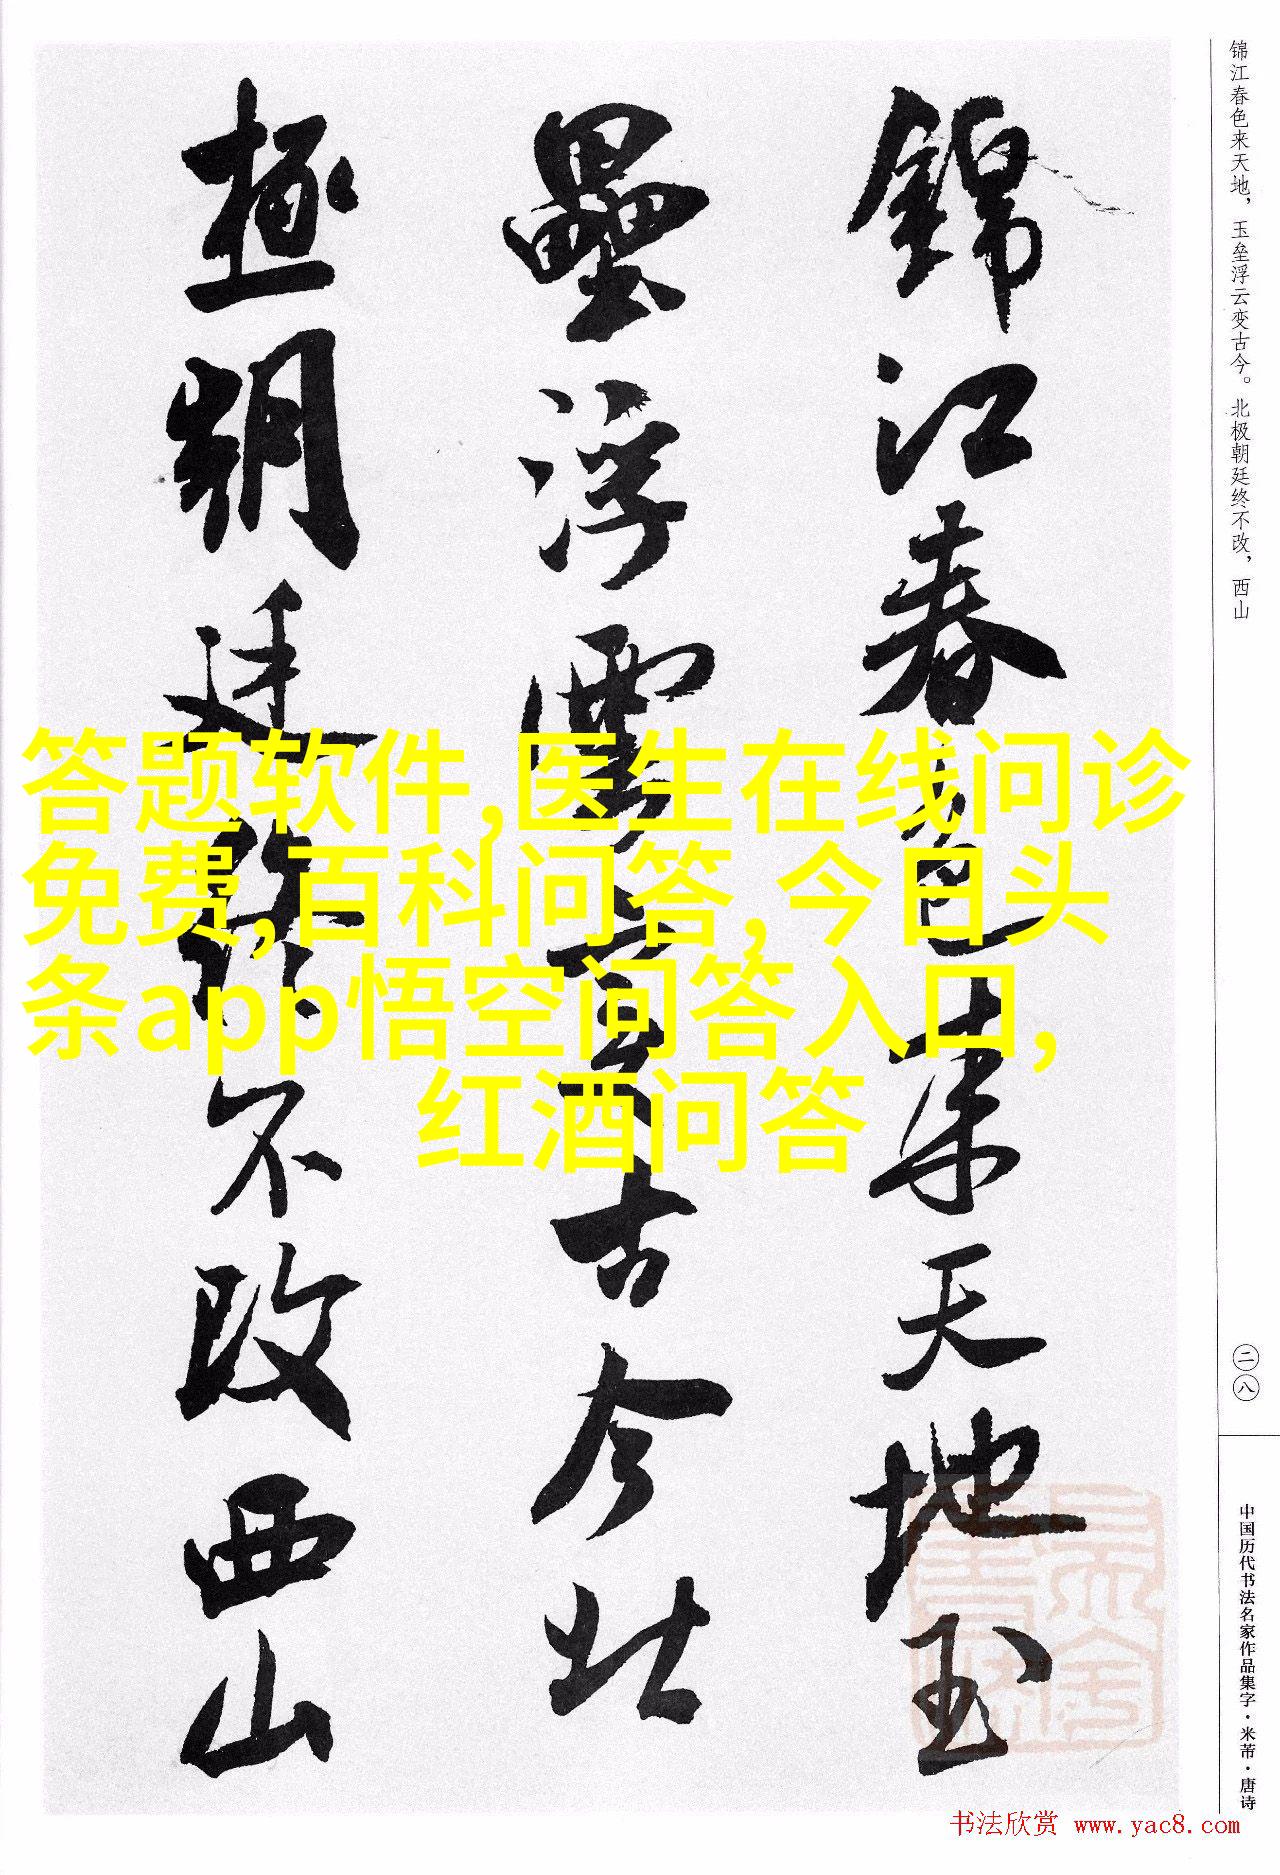 锦江春色来天地玉
壘浮雲变古今北
極朝廷终不改西山
锦江春色来天地，玉垒浮云变古今。北极朝廷终不改，西山
二八
中国历代书法名家作品集字·米芾·唐诗
答题软件,医生在线问诊
免费,百科问答,今日头
条app悟空问答入口,
红酒问答
书法欣赏 www.yac8.com